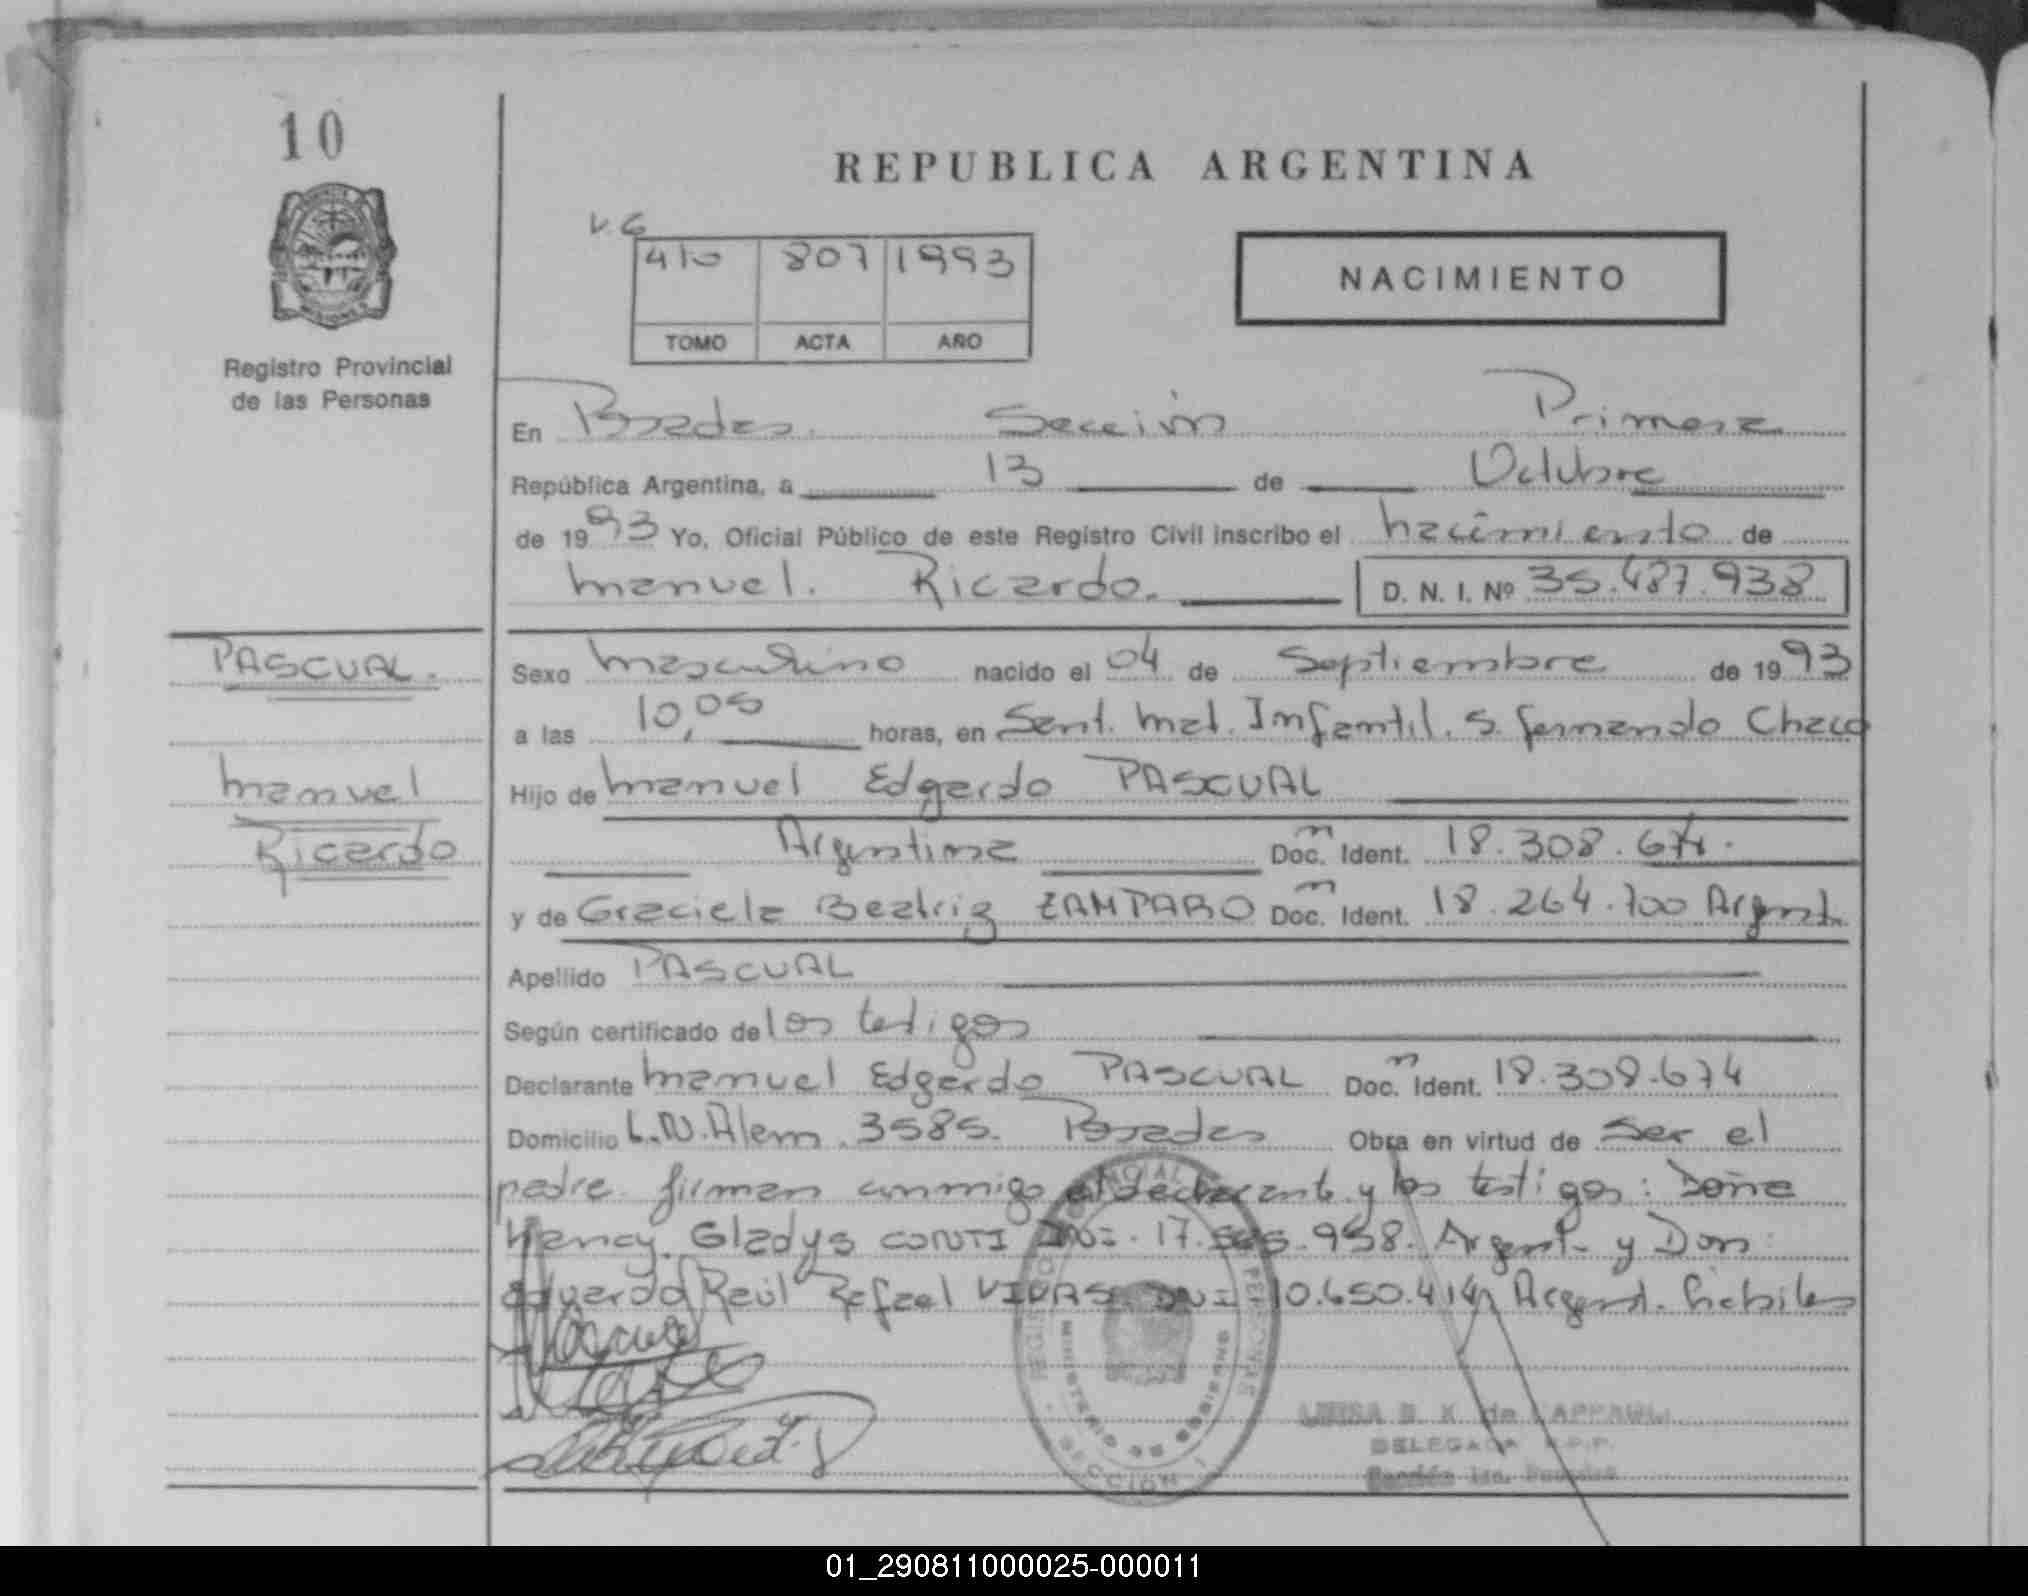 10
REPUBLICA ARGENTINA
V. 6
410 807 1993
TOMO ACTA AÑO
NACIMIENTO
Registro Provincial
de las Personas
En Posadas. Sección Primera
República Argentina, a 13 de Octubre
de 1993 Yo, Oficial Público de este Registro Civil inscribo el nacimiento de
Manuel. Ricardo. D. N. I. Nº 35.487.938
PASCUAL.
Sexo masculino nacido el 04 de Septiembre de 1993
a las 10,05 horas, en Sant. Mat. Infantil. S. Fernando Chaco
Manuel
Hijo de Manuel Edgardo PASCUAL
Ricardo
Argentina Doc. Ident. 18.308.674.
y de Graciela Beatriz ZAMPARO Doc. Ident. 18.264.700 Argent.
Apellido PASCUAL
Según certificado de los testigos
Declarante Manuel Edgardo PASCUAL Doc. Ident. 18.308.674
Domicilio L.N.Alem. 3585. Posadas Obra en virtud de Ser el
padre. firman conmigo el declarante y los testigos: Doña
Nancy. Gladys CONTI DNI. 17. .958. Argent. y Don:
Eduardo Raúl Rafael VIVAS. DNI 10.650.414 Argent. hábiles
REGISTRO PROVINCIAL PERSONAS
MINISTERIO DE GOBIERNO
SECCION 1
LUISA B. K. de CAPPAULI
DELEGADA R.P.P.
Sección 1ra. Posadas
01_290811000025-000011